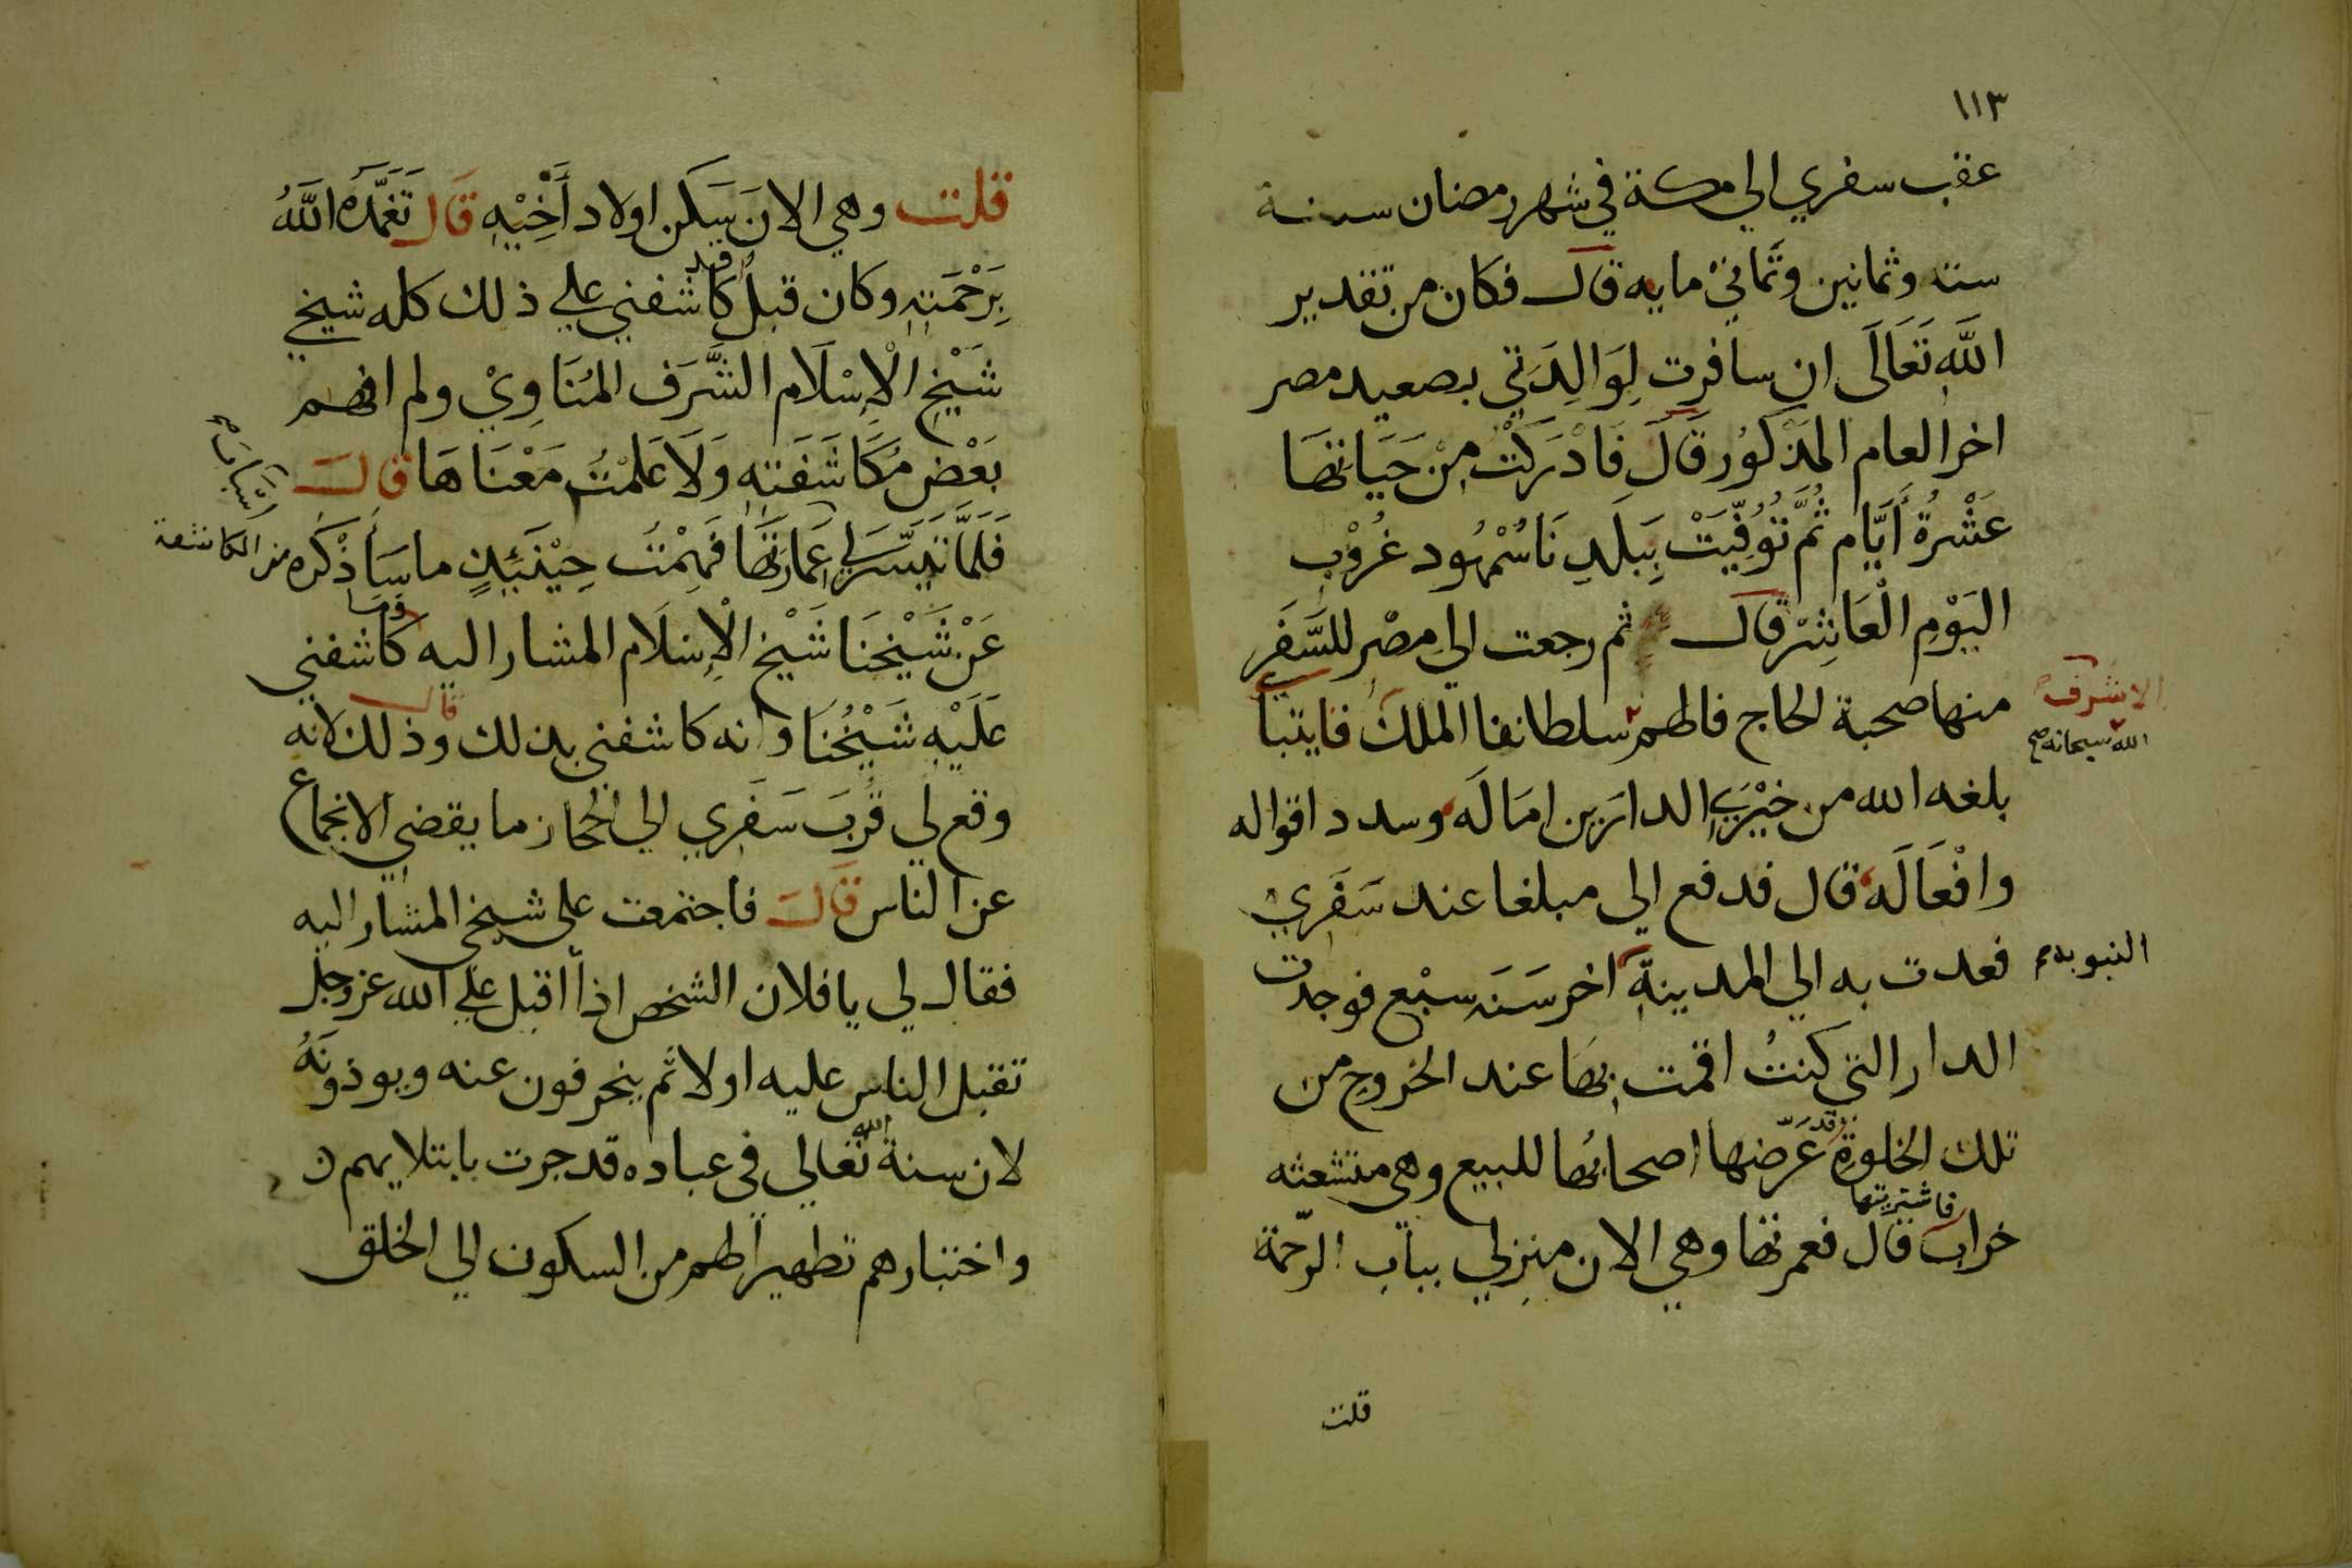 ١١٣
عقب سفري الي مكة في شهر رمضان سنة
سته وثمانين وثماني مايه قال فكان من تقدير
اللَّه تَعَالَى ان سافرت لِوَالِدَتي بصعيد مصر
اخر العام المذكور قَالَ فَادْرَكْتُ مِنْ حَيَاتهَا
عَشْرةُ أَيَّام ثُمَّ تُوُفِّيَتْ بِبَلَدِ نَاسُمْهُود غُرُوْبِ
اليَوْمِ الْعَاشِرْ قال ثم رجعت الي مصْر للسَّفَرِ
منها صحبة الحاج فالهم سلطاننا الملك قايتباي
الاشرف
الله سبحانه صح
بلغه الله من خيْرَيِ الدارَين امَالَه وسدد اقواله
وافْعَالَه قال فدفع الي مبلغا عند سَفَرِيْ
فعدت به الي المدينة اخر سَنَه سبْع فوجدت
النبويه
الدار التي كنتُ اقمت بهَا عند الخروج من
تلك الخلوة عَرّضها اصحابُها للبيع وهي متشعثه
وقد
خراب قال فعمرتها وهي الان منزلي بباب الرّحمة
فاشتريتها
قلت
قلت وهي الانَ سَكَن اولاد أَخِيْهِ قَال تَغَمَّدَهُ اللَّهُ
بِرَحْمَتِهِ وكان قبلُ كَاشفني علي ذلك كله شيخي
قد
شَيْخ الْاِسْلَام الشَّرَف المُنَاوِيْ ولم افهم
بَعْض مُكَاشَفَتِهِ وَلَا عَلمْتُ مَعْنَاهَا قال
فَلَمَّا تَيَسَّرَ لِي عِمَارتهَا فَهِمْتُ حِيْنَئِذٍ ما سَأَذْكُره من المكاشفة
عَنْ شَيْخنَا شَيْخ الْاِسْلَام المشار اليه كَاشفني
وَمَا
عَلَيْهِ شَيْخُنَا وانه كاشفني بذلك وذلك لانه
قال
وقع لي قُربَ سَفَري الي الحجاز ما يقضي الانجماع
عن الناس قَالَ فاجتمعت علي شيخي المشار اليه
فقال لي يا فلان الشخص اذا اقبل علي الله عز وجل
تقبل الناس عليه اولا ثم ينحرفون عنه ويوذونَهُ
لان سنة تعالي في عباده قد جرت بابتلايهم
الله
واختبارهم تطهيرا لهم من السكون الي الخلق